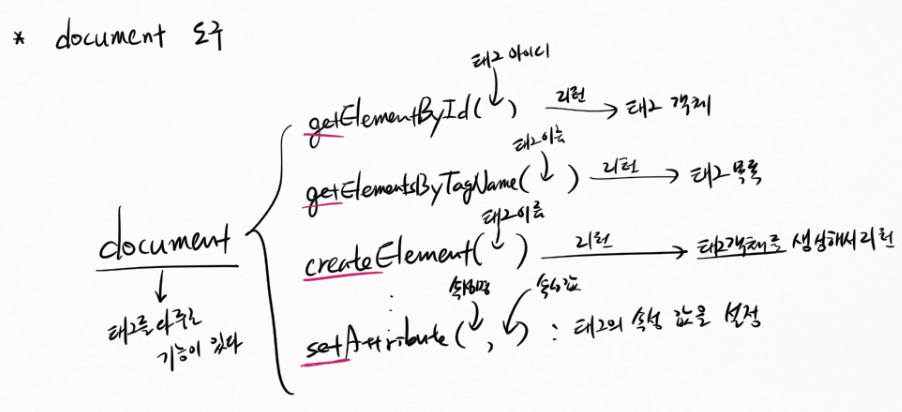 * document 도구
태그 아이디
getElementById( ) 리턴 태그 객체
태그이름
getElementsByTagName( ) 리턴 태그 목록
태그이름
createElement( ) 리턴 태그객체를 생성해서 리턴
document
속성명 속성값
setAttribute( , ) : 태그의 속성 값을 설정
태그를 다루는
기능이 있다